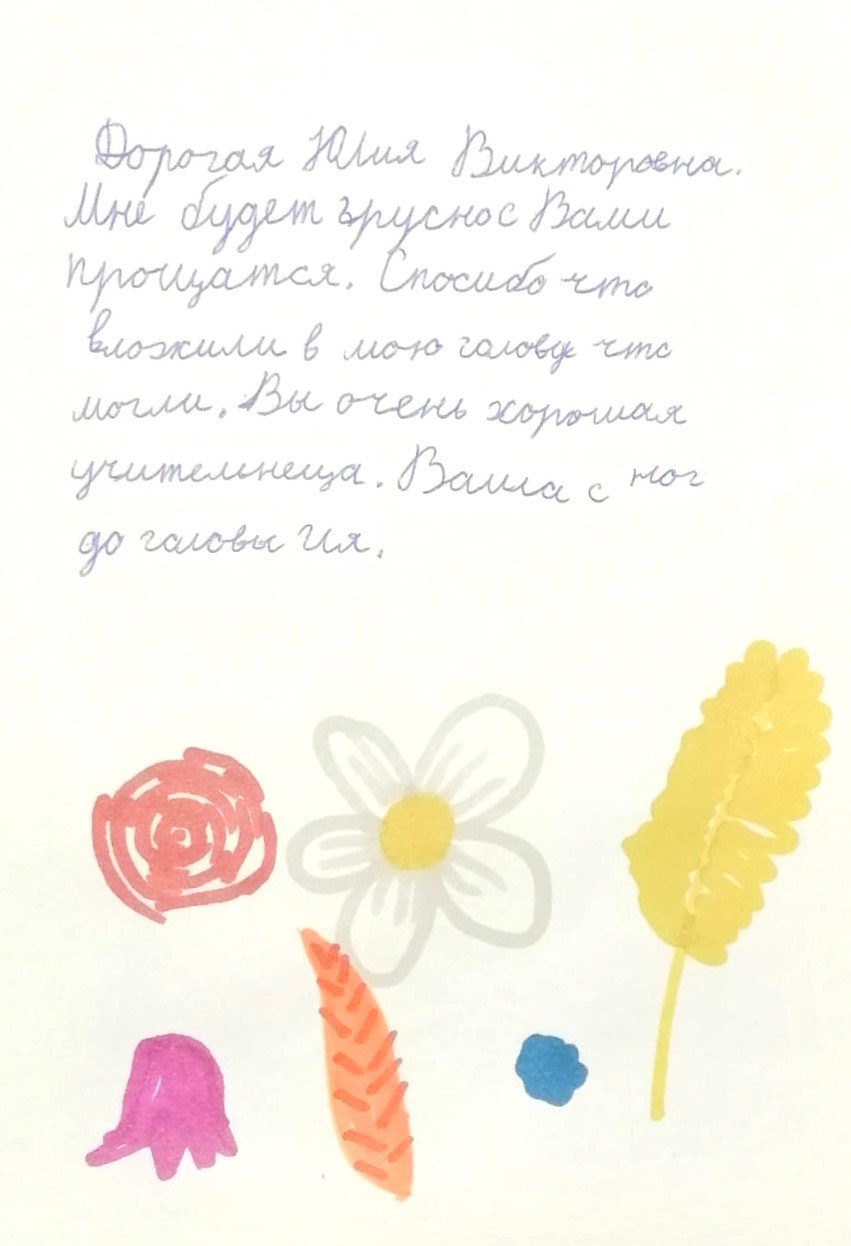 Дорогая Юлия Викторовна.
Мне будет груснос Вами
прощатся. Спосибо что
вложили в мою голову что
могли. Вы очень хорошая
учительнеца. Ваша с ног
до головы Ия.